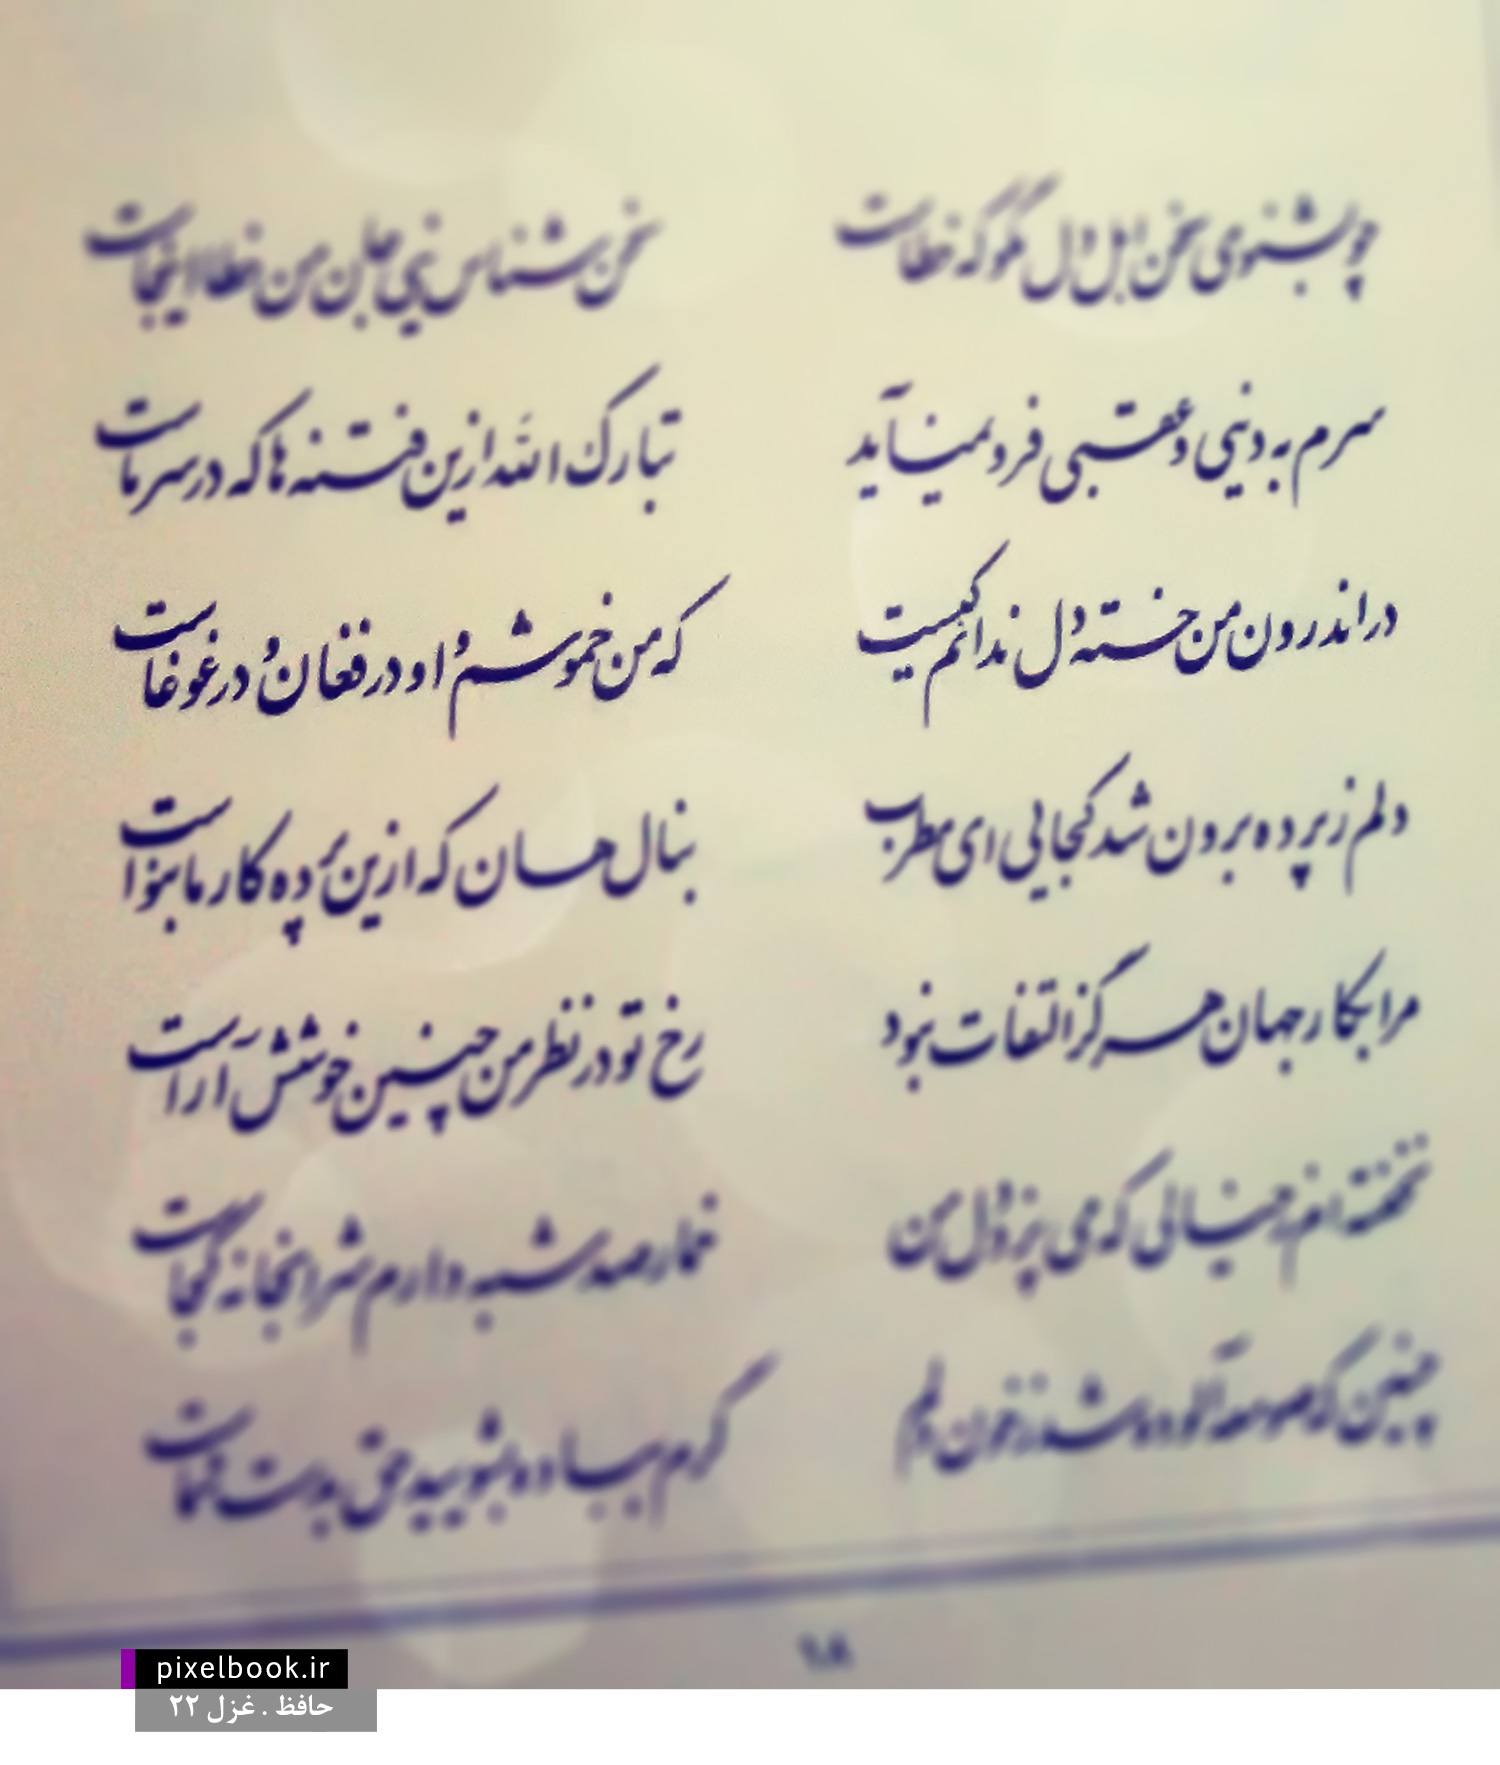 چو بشنوی سخن اهل دل مگو که خطاست سخن شناس نیی جان من خطا اینجاست
سرم به دنیی و عقبی فرو نمیآید تبارک الله ازین فتنه ها که در سر ماست
در اندرون من خسته دل ندانم کیست که من خموشم و او در فغان و در غوغاست
دلم ز پرده برون شد کجایی ای مطرب بنال هان که ازین پرده کار ما بنواست
مرا بکار جهان هرگز التفات نبود رخ تو در نظر من چنین خوشش آراست
نخفته ام ز خیالی که می پزد دل من خمار صد شبه دارم شرابخانه کجاست
چنین که صومعه آلوده شد ز خون دلم گرم بباده بشویید حق بدست شماست
۹۸
pixelbook.ir
حافظ . غزل ۲۲